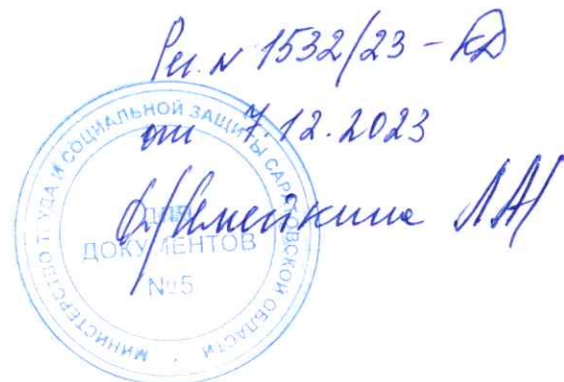 Рег. № 1532/23 – КД
от 7.12.2023
Змейкина ЛА
МИНИСТЕРСТВО ТРУДА И СОЦИАЛЬНОЙ ЗАЩИТЫ САРАТОВСКОЙ ОБЛАСТИ
ДЛЯ
ДОКУМЕНТОВ
№5